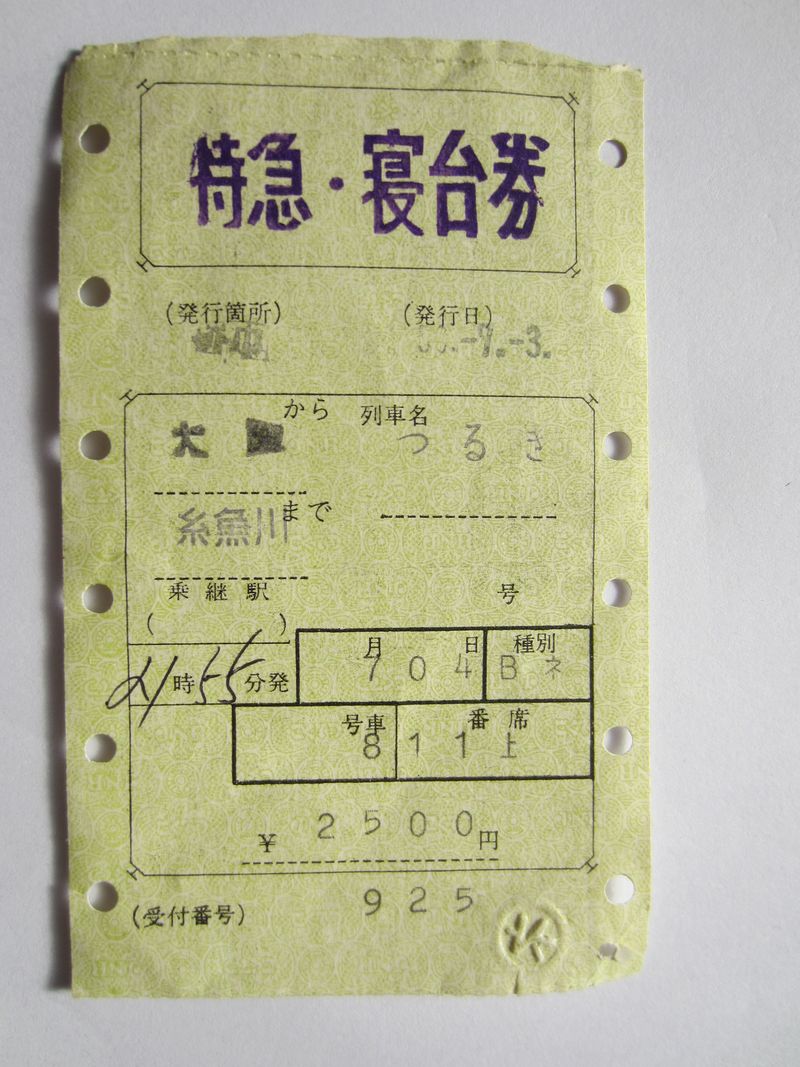 特急・寝台券
(発行箇所) (発行日)
-7.-3.
大 から 列車名 つるぎ
糸魚川 まで
乗継駅 号
( )
月 日 種別
21時55分発 7 0 4 B ネ
号車 番 席
8 1 1 上
¥ 2500 円
(受付番号) 925